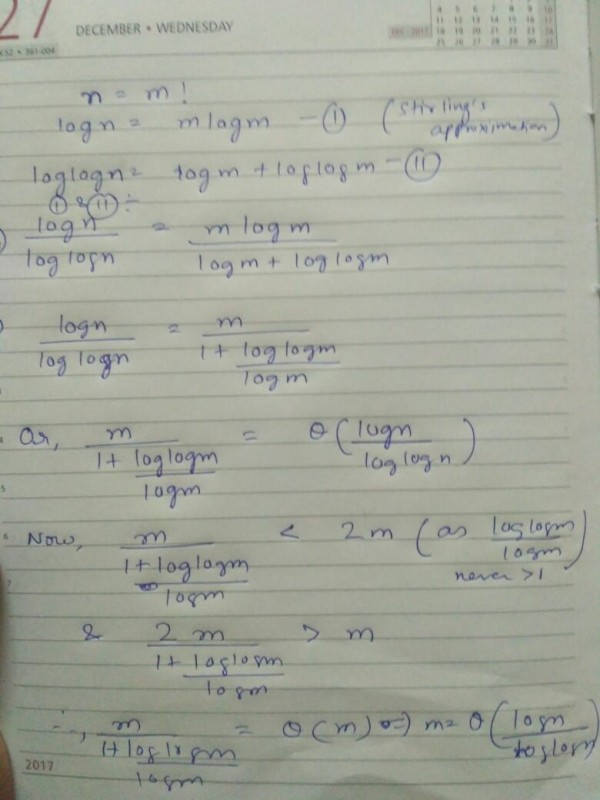 27
DECEMBER • WEDNESDAY
n = m!
logn = m logm - Ⓘ (stirling's approximation)
loglogn = logm + loglogm - Ⓘ Ⓘ
Ⓘ & ⒾⒾ ÷
logn / loglogn = m logm / logm + loglogm
logn / log logn = m / 1 + loglogm / logm
Or, m / 1 + loglogm / logm = θ ( logn / loglogn )
Now, m / 1 + loglogm / logm < 2m ( as loglogm / logm never >1 )
& 2m / 1 + loglogm / logm > m
∴, m / 1 + loglogm / logm = θ (m) ⇒ m = θ ( logn / loglogn )
2017